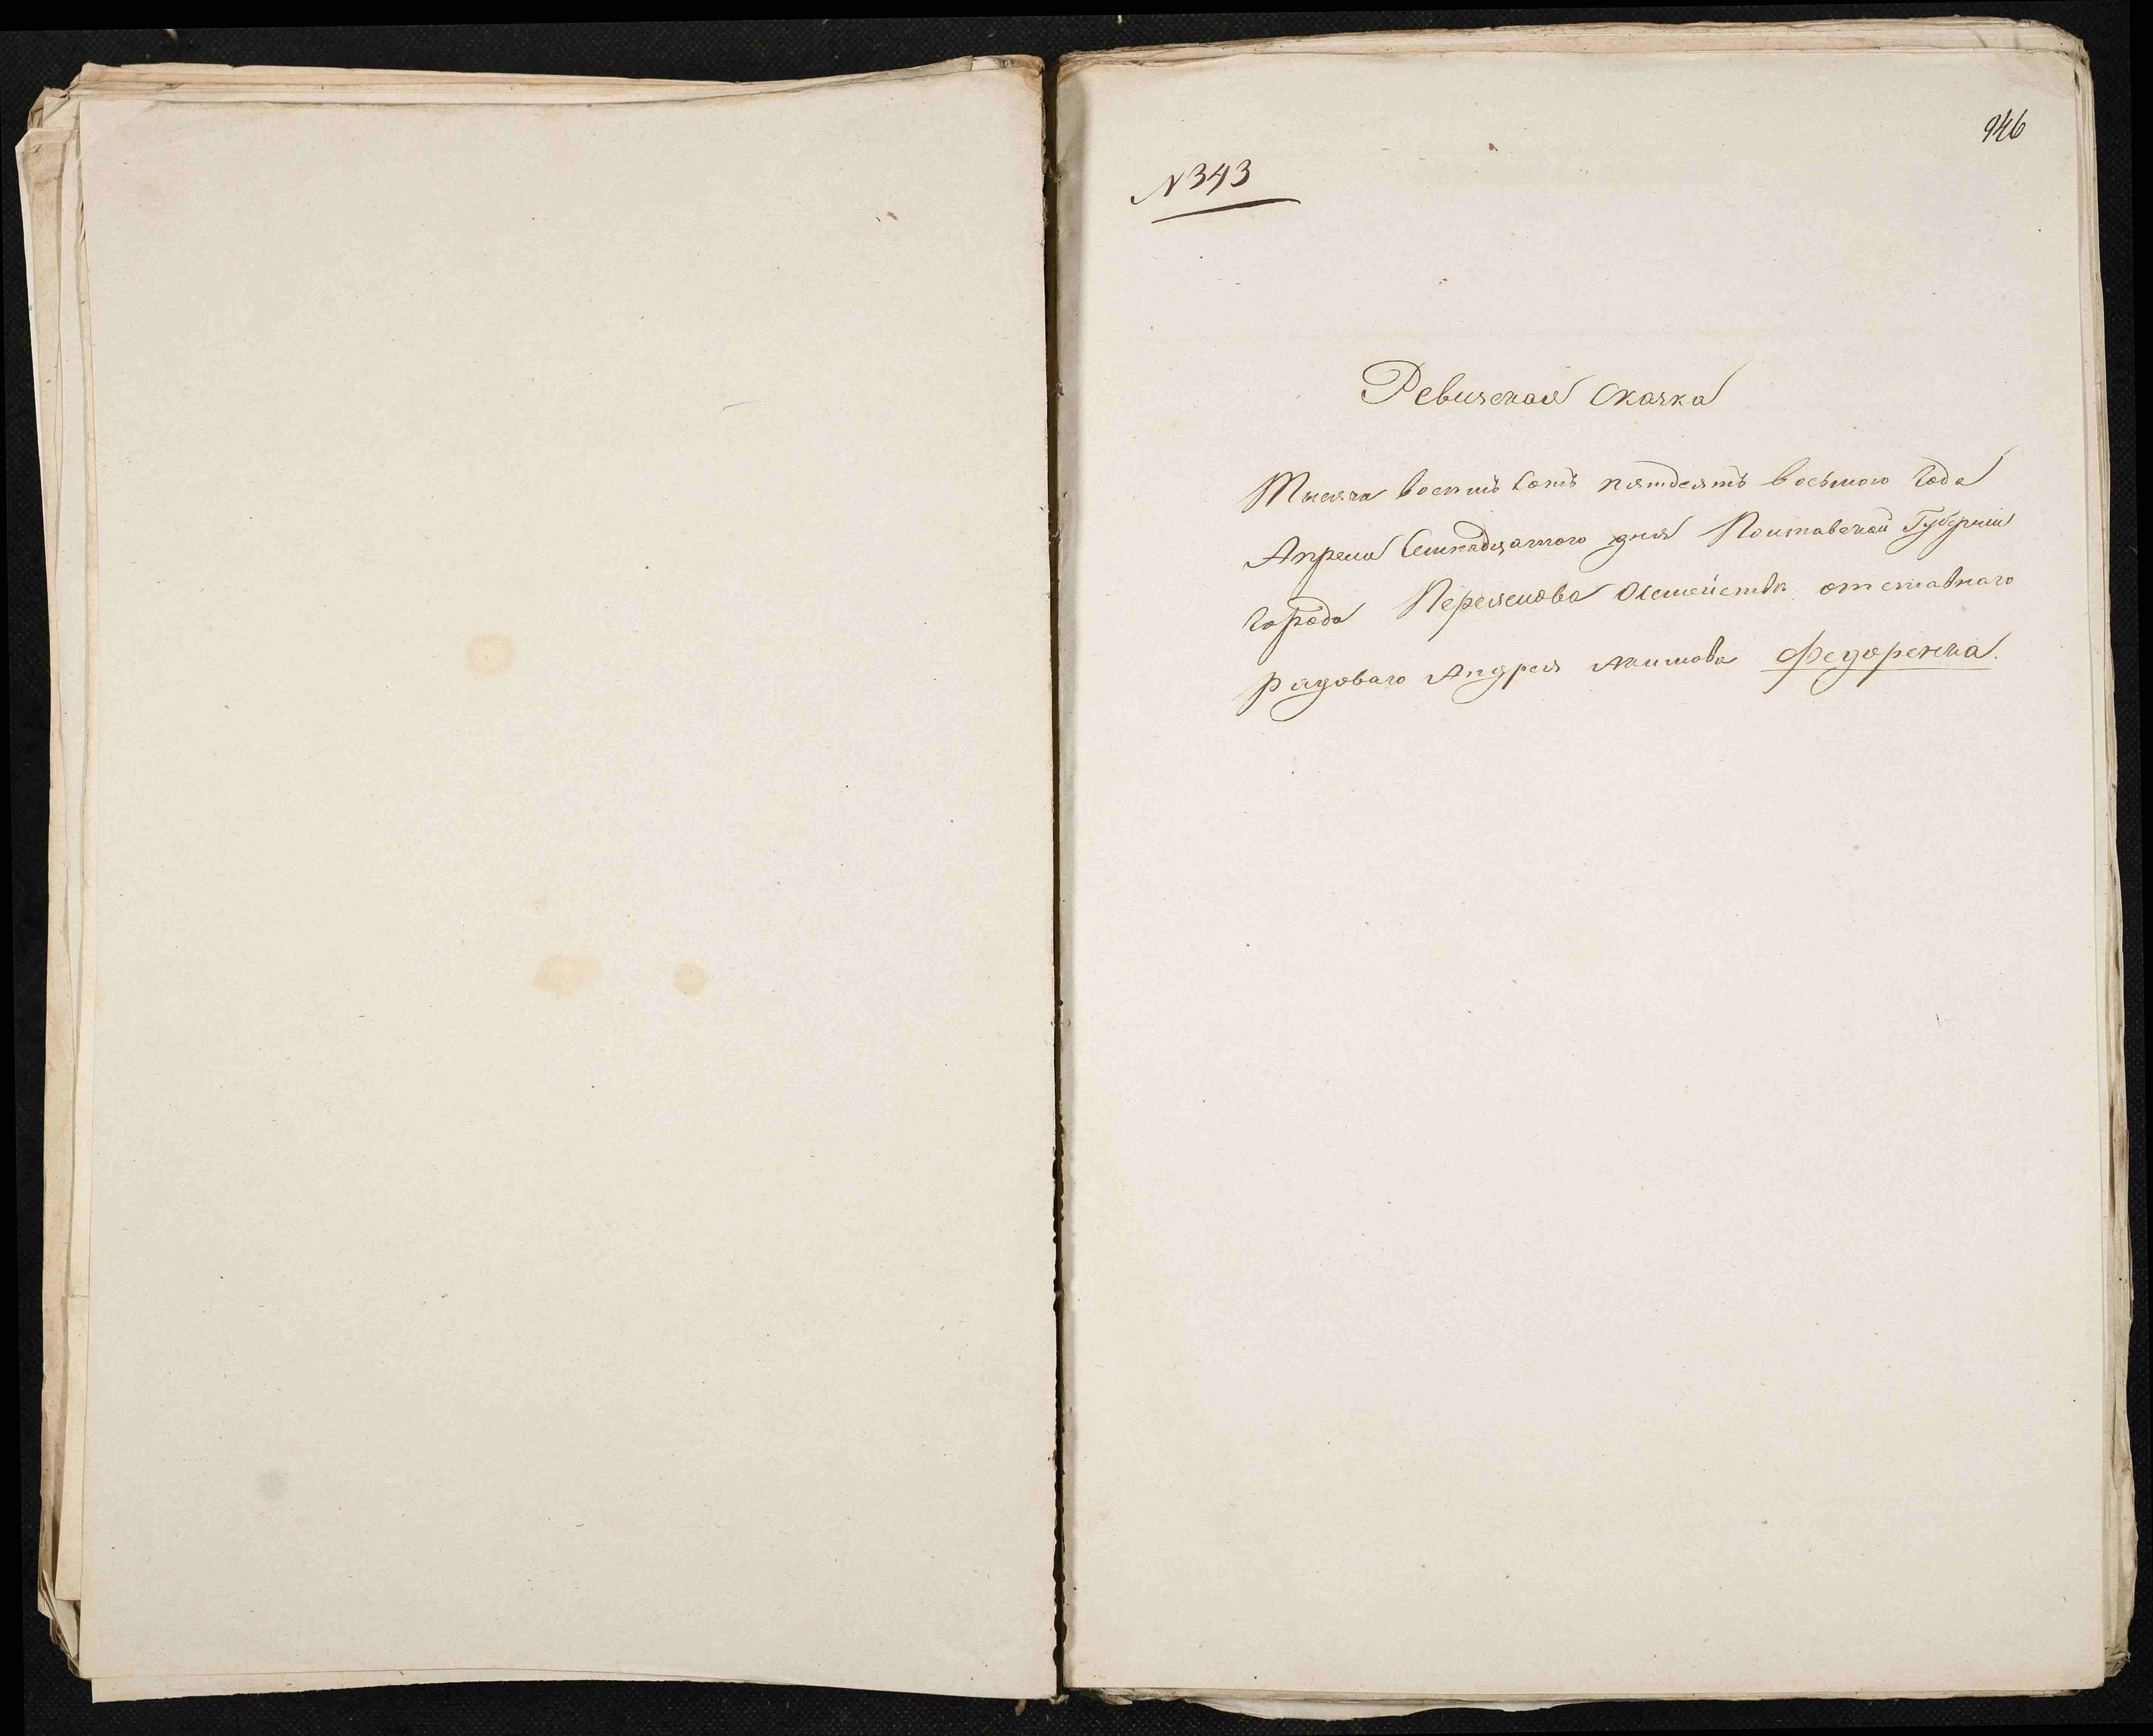 946
N 343
Ревизская Сказка
Тысяча восемь сотъ пятдесятъ восьмого Года
Апреля Семнадцатого дня Полтавской Губерніи
Города Переяслова Осемействѣ отставнаго
рядоваго Андрея Акимова Федоренка.